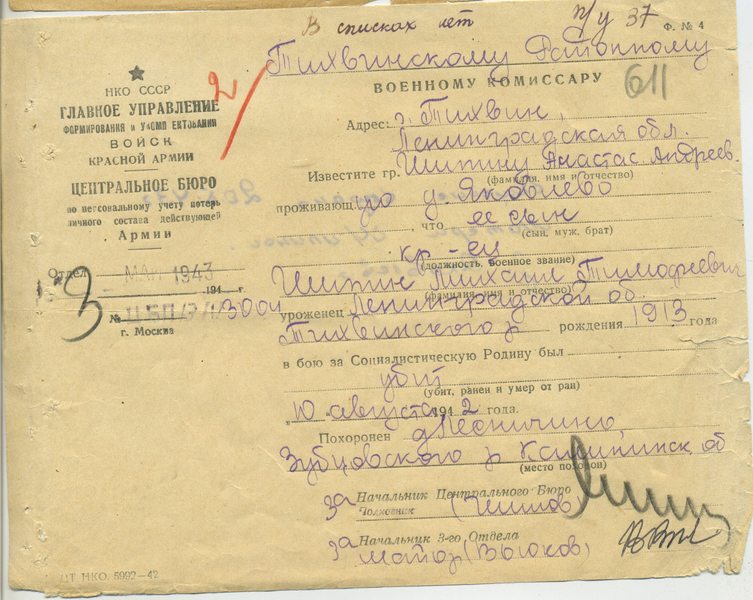 В списках нет
п/у 37
Ф. № 4
Тихвинскому Районному
ВОЕННОМУ КОМИССАРУ
611
НКО СССР
2/
ГЛАВНОЕ УПРАВЛЕНИЕ
ФОРМИРОВАНИЯ И УКОМПЛЕКТОВАНИЯ
ВОЙСК
КРАСНОЙ АРМИИ
ЦЕНТРАЛЬНОЕ БЮРО
по персональному учету потерь
личного состава действующей
Армии
Отдел
МАЙ 1943
194 г.
3
№
г. Москва
Адрес: г. Тихвин,
Ленинградская обл.
Известите гр. Шипину Анастас Андреев.
(фамилия, имя и отчество)
проживающую д Яковлево
, что ее сын
(сын, муж, брат)
кр-ец
(должность, военное звание)
Шипин Михаил Тимофеевич
(фамилия, имя и отчество)
уроженец Ленинградской об.
Тихвинского р рождения 1913 года
в бою за Социалистическую Родину был
убит
(убит, ранен и умер от ран)
10 августа 1942 года.
Похоронен д Лесничино
Зубцовского р Калининск. об
(место похорон)
За Начальник Центрального Бюро
Полковник (Шишов
За Начальник 3-го Отдела
майор (Вьюков)
ЦТ НКО. 5992—42